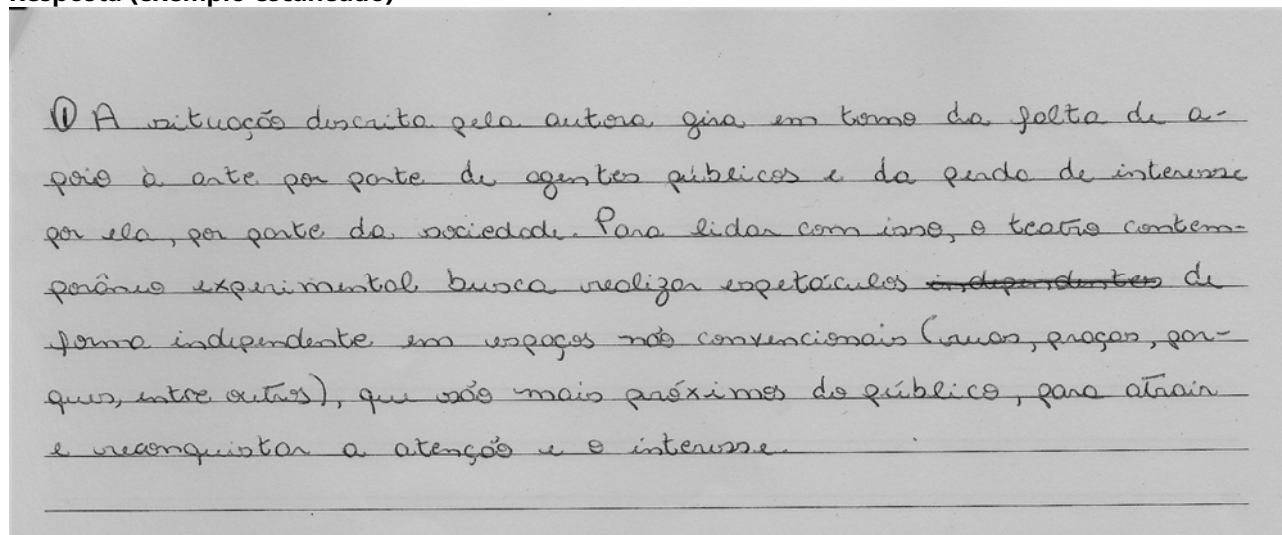 Resposta (exemplo escaneado)
① A situação descrita pela autora gira em torno da falta de a-
poio à arte por parte de agentes públicos e da perda de interesse
por ela, por parte da sociedade. Para lidar com isso, o teatro contem-
porâneo experimental busca realizar espetáculos independentes de
forma independente em espaços não convencionais (ruas, praças, par-
ques, entre outros), que são mais próximos do público, para atrair
e reconquistar a atenção e o interesse.